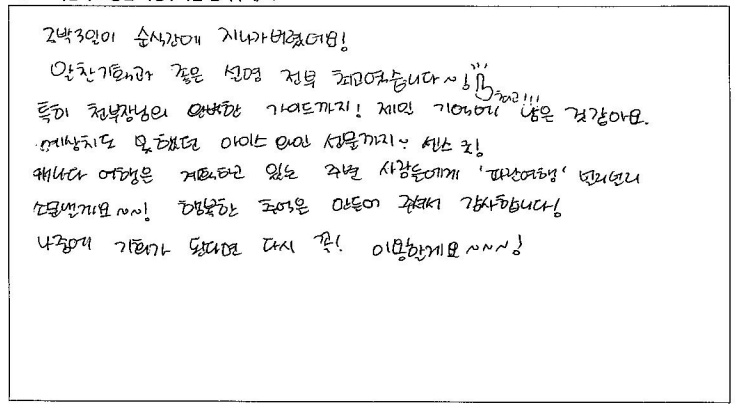 2박3일이 순식간에 지나가버렸어요!
알찬기획과 좋은 설명 전부 최고였습니다~! 최고!!!
특히 천부장님의 완벽한 가이드까지! 제일 기억에 남은 것같아요.
예상치도 못했던 아이스 와인 선물까지~ 센스 굿!
캐나다 여행은 계획하고 있는 주변 사람들에게 '파란여행' 널리널리
소문낼게요~~! 행복한 추억은 만들어 주셔서 감사합니다!
나중에 기회가 된다면 다시 꼭! 이용할게요~~~!